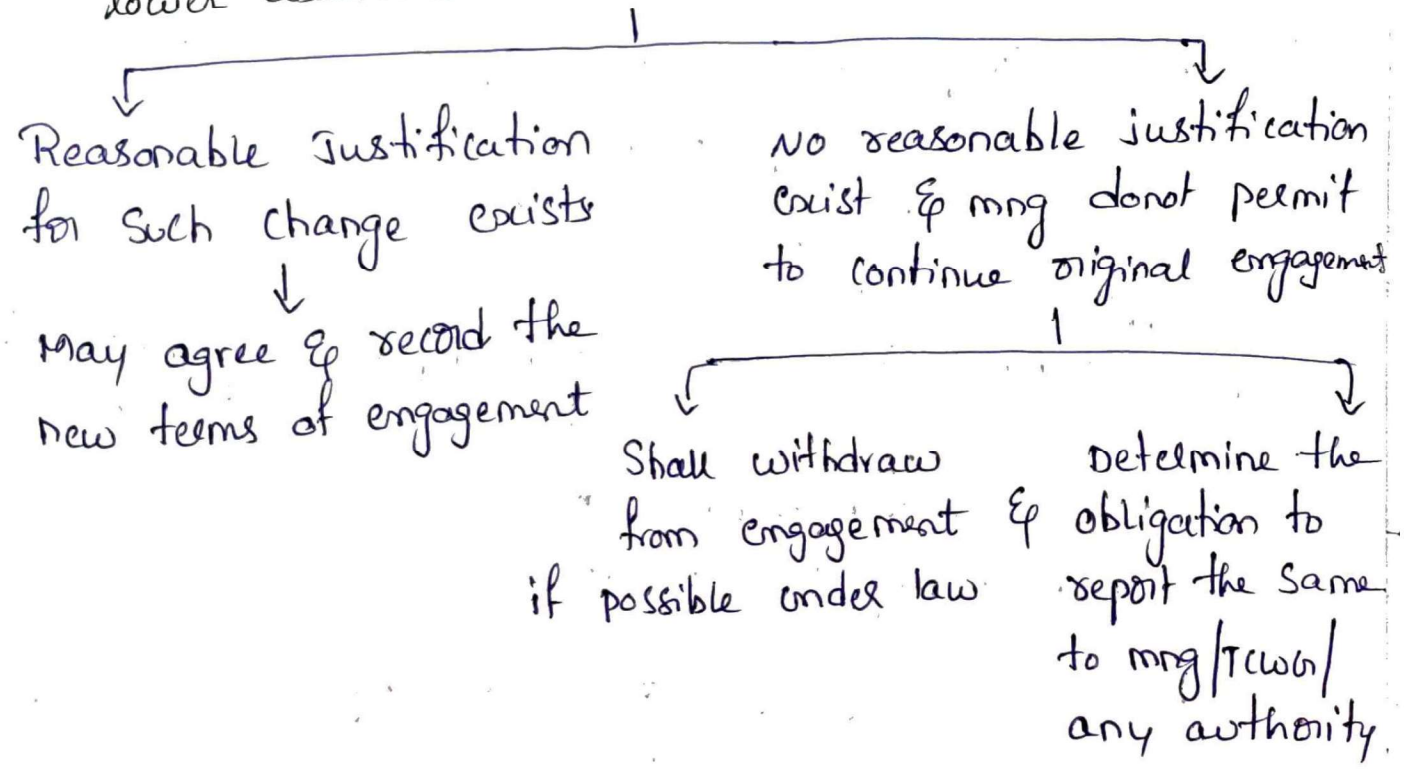 lower
Reasonable Justification
for such change exists
May agree & record the
new terms of engagement
No reasonable justification
exist & mng donot permit
to continue original engagement
Shall withdraw
from engagement &
if possible under law
Determine the
obligation to
report the same
to mng/TCWG/
any authority.